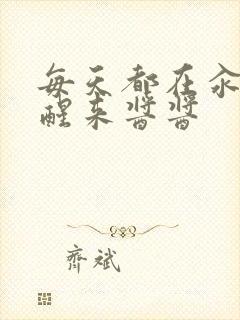 每天都在汆
醒来酱酱
齐斌